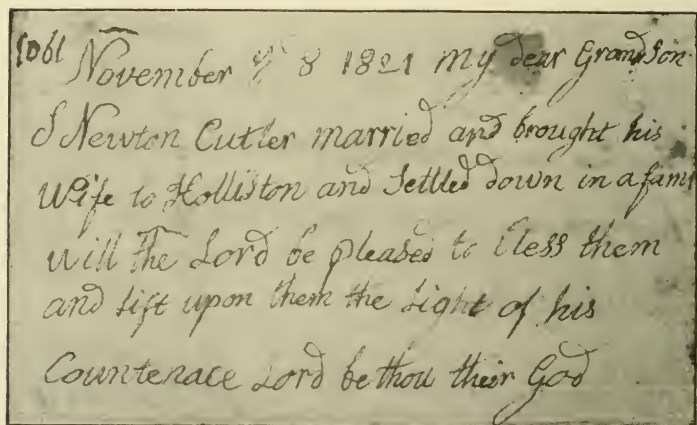 1061 November ye 8 1821 my dear Grandson
S Newton Cutler married and brought his
Wife to Holliston and Settled down in a fami
will the Lord be pleased to bless them
and lift upon them the Light of his
Countenace Lord be thou their God